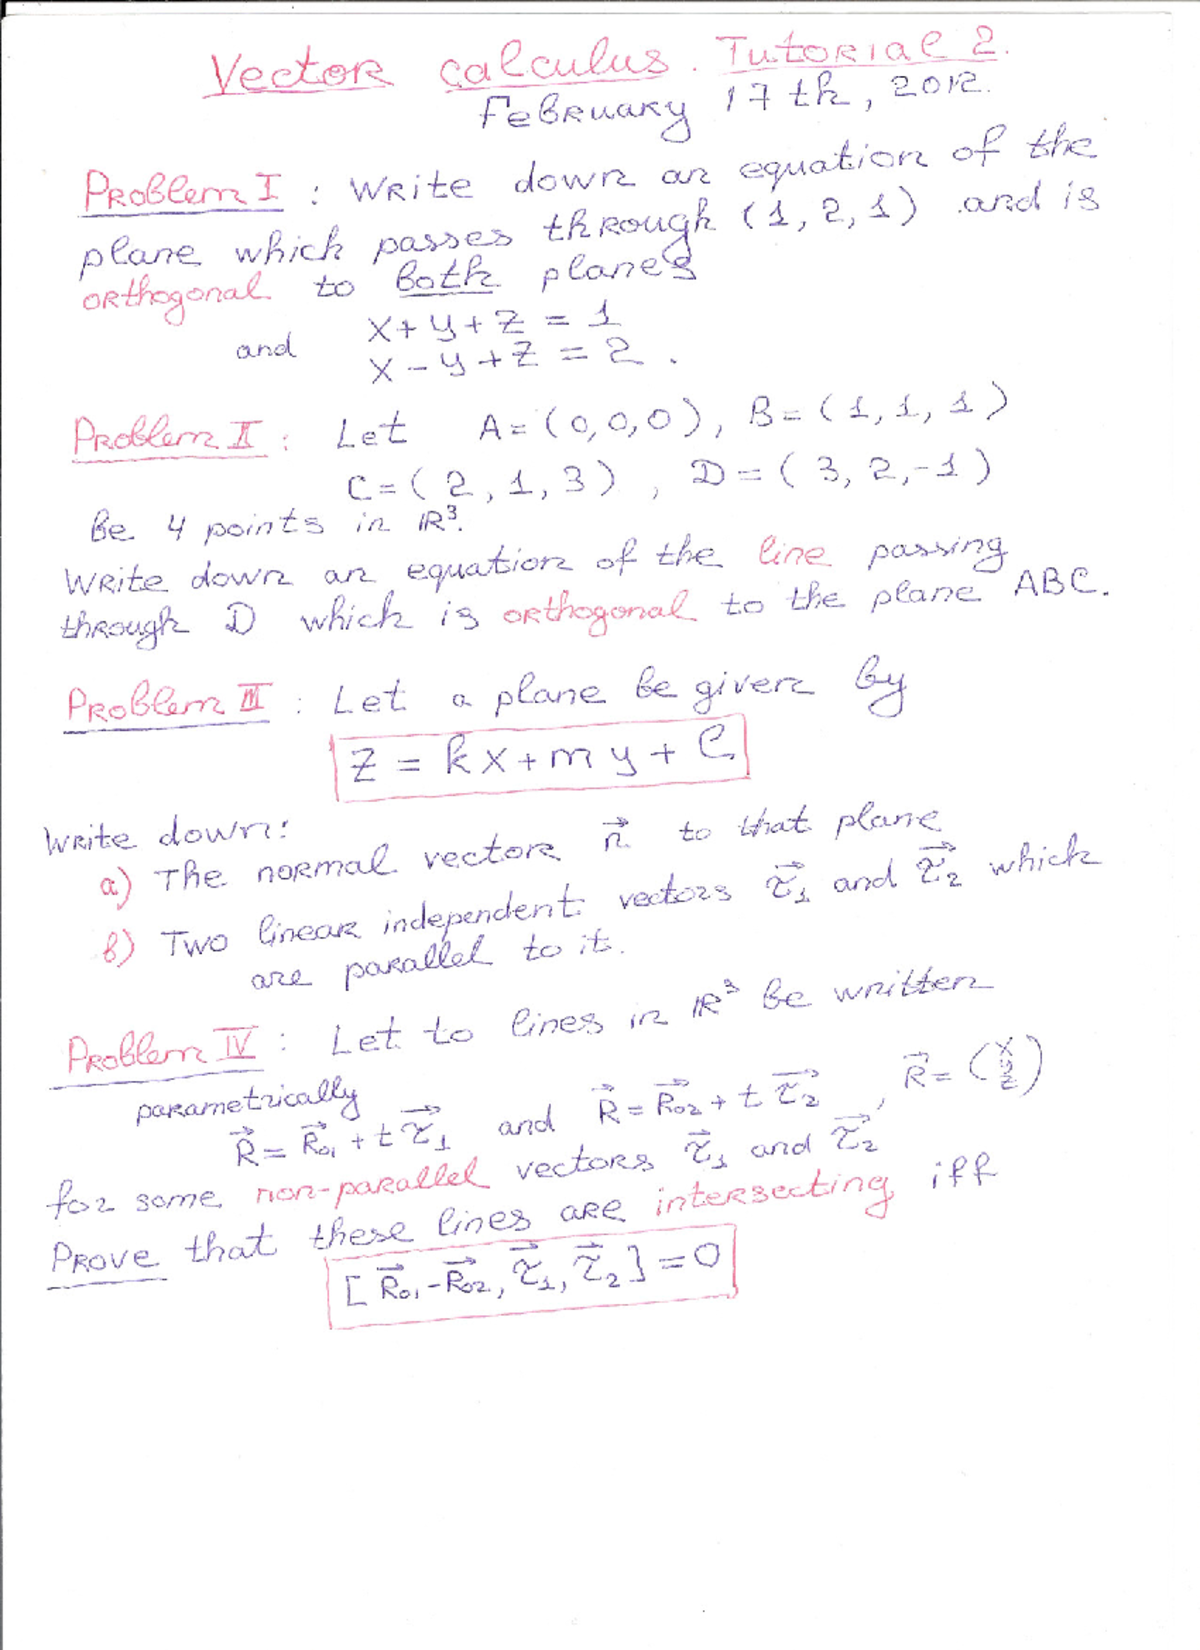 Vector calculus. Tutorial 2.
February 17th, 2012.
Problem I : Write down an equation of the
plane which passes through (1, 2, 1) and is
orthogonal to both planes
x + y + z = 1
and
x - y + z = 2 .
Problem II : Let A = (0,0,0), B = (1, 1, 1)
C = (2, 1, 3) , D = (3, 2, -1)
be 4 points in ℝ³.
Write down an equation of the line passing
through D which is orthogonal to the plane ABC.
Problem III : Let a plane be given by
z = kx + my + C
Write down:
a) The normal vector n⃗ to that plane
b) Two linear independent vectors τ⃗₁ and τ⃗₂ which
are parallel to it.
Problem IV : Let to lines in ℝ³ be written
parametrically
R⃗ = R⃗₀₁ + t τ⃗₁ and R⃗ = R⃗₀₂ + t τ⃗₂ , R⃗ = (x y z)
for some non-parallel vectors τ⃗₁ and τ⃗₂
Prove that these lines are intersecting iff
[R⃗₀₁ - R⃗₀₂, τ⃗₁, τ⃗₂] = 0